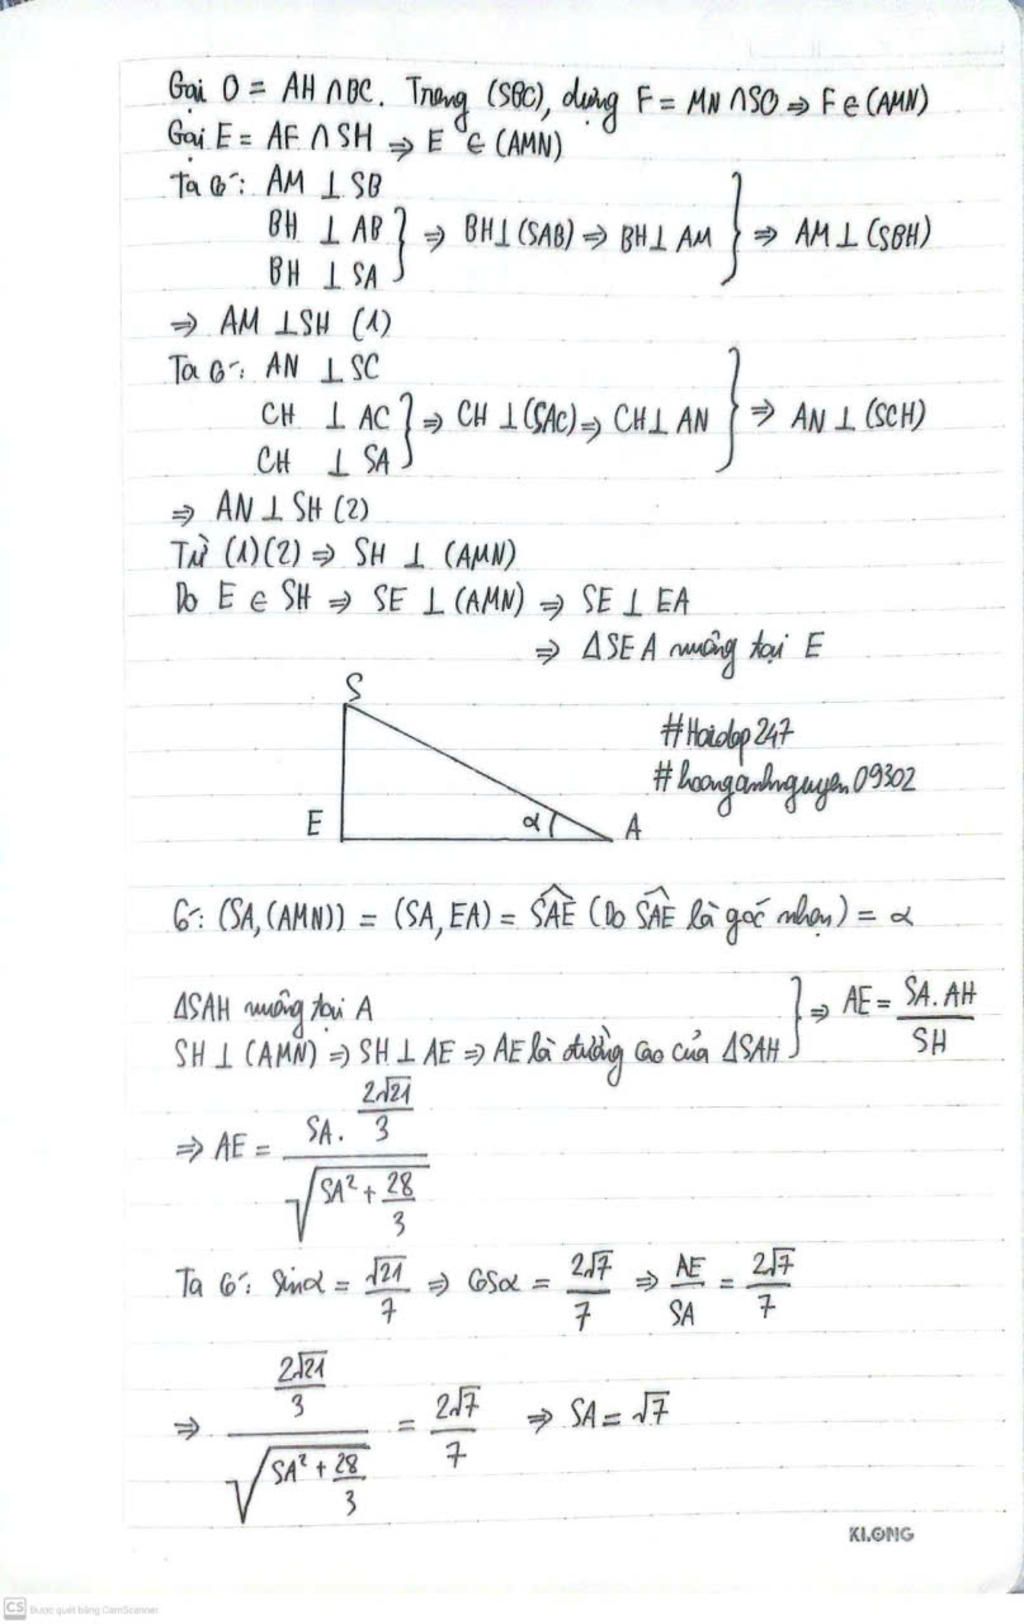 Gọi O = AH ∩ BC. Trong (SBC), dựng F = MN ∩ SO ⇒ F ∈ (AMN)
Gọi E = AF ∩ SH ⇒ E ∈ (AMN)
Ta có: AM ⊥ SB
BH ⊥ AB
BH ⊥ SA } ⇒ BH ⊥ (SAB) ⇒ BH ⊥ AM } ⇒ AM ⊥ (SBH)
⇒ AM ⊥ SH (1)
Ta có: AN ⊥ SC
CH ⊥ AC
CH ⊥ SA } ⇒ CH ⊥ (SAC) ⇒ CH ⊥ AN } ⇒ AN ⊥ (SCH)
⇒ AN ⊥ SH (2)
Từ (1)(2) ⇒ SH ⊥ (AMN)
Do E ∈ SH ⇒ SE ⊥ (AMN) ⇒ SE ⊥ EA
⇒ ΔSEA vuông tại E
S
#Hoidap247
#hoanganhnguyen09302
E α A
Có: (SA, (AMN)) = (SA, EA) = SÂE (Do SÂE là góc nhọn) = α
ΔSAH vuông tại A
SH ⊥ (AMN) ⇒ SH ⊥ AE ⇒ AE là đường cao của ΔSAH } ⇒ AE = SA.AH / SH
⇒ AE = (SA. 2√21/3) / √(SA² + 28/3)
Ta có: sinα = √21/7 ⇒ cosα = 2√7/7 ⇒ AE/SA = 2√7/7
⇒ (2√21/3) / √(SA² + 28/3) = 2√7/7 ⇒ SA = √7
KLONG
CS Được quét bằng CamScanner